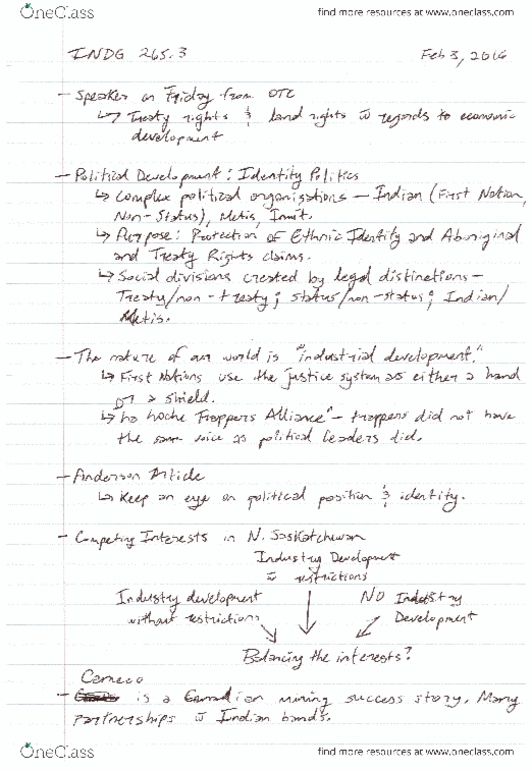 OneClass
find more resources at www.oneclass.com
INDG 265.3 Feb 3, 2016
- Speaker on Friday from OTC
↳ Treaty rights & land rights w regards to economic
development
- Political Development: Identity Politics
↳ Complex political organizations - Indian (First Nation,
Non-Status), Metis, Inuit.
↳ Purpose: Protection of Ethnic Identity and Aboriginal
and Treaty Rights claims.
↳ Social divisions created by legal distinctions -
Treaty/non-treaty; status/non-status; Indian/
Metis.
- The nature of our world is "industrial development."
↳ First Nations use the justice system as either a hand
or a shield.
↳ "La Loche Trappers Alliance" - trappers did not have
the same voice as political leaders did.
- Anderson Article
↳ Keep an eye on political position & identity.
- Competing Interests in N. Saskatchewan
Industry Development
w restrictions
Industry development
without restrictions
NO Industry
Development
Balancing the interests?
Cameco
- is a Canadian mining success story. Many
partnerships w Indian bands.
OneClass
find more resources at www.oneclass.com